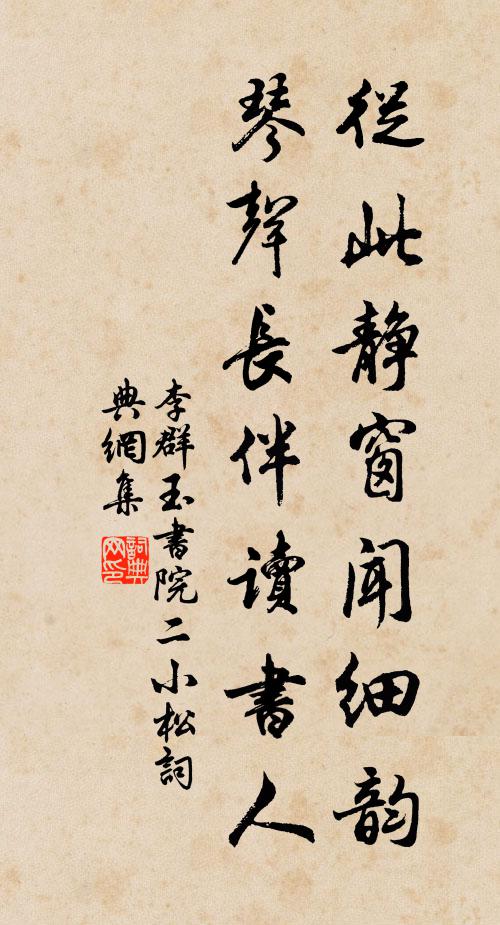 從此靜窗聞細韵
琴聲長伴讀書人
李群玉書院二小松詞
典網集
詞典網印